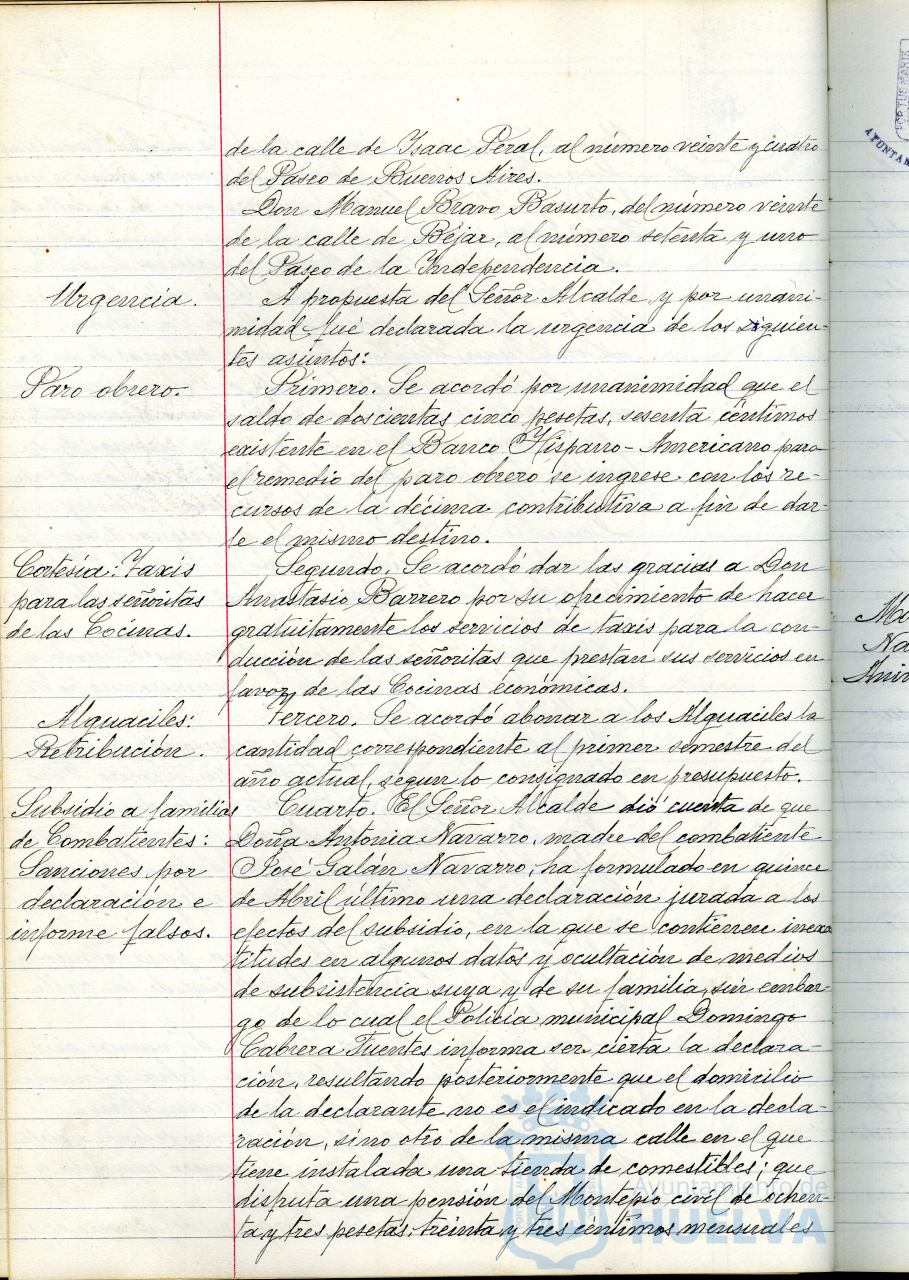 de la calle de Isaac Peral, al número veinte y cuatro
del Paseo de Buenos Aires.
Don Manuel Bravo Basurto, del número veinte
de la calle de Béjar, al número setenta y uno
del Paseo de la Independencia.
Urgencia.
A propuesta del Señor Alcalde y por unani-
midad fué declarada la urgencia de los siguien-
tes asuntos:
Paro obrero.
Primero. Se acordó por unanimidad que el
saldo de doscientas cinco pesetas, sesenta céntimos
existente en el Banco Hispano-Americano para
el remedio del paro obrero se ingrese con los re-
cursos de la décima contributiva a fin de dar-
le el mismo destino.
Cortesía: Taxis
para las señoritas
de las Cocinas.
Segundo. Se acordó dar las gracias a Don
Anastasio Barrero por su ofrecimiento de hacer
gratuitamente los servicios de taxis para la con-
ducción de las señoritas que prestan sus servicios en
favor de las Cocinas económicas.
Alguaciles:
Retribución.
Tercero. Se acordó abonar a los Alguaciles la
cantidad correspondiente al primer semestre del
año actual, segun lo consignado en presupuesto.
Subsidio a familias
de Combatientes:
Sanciones por
declaración e
informe falsos.
Cuarto. El Señor Alcalde dió cuenta de que
Doña Antonia Navarro, madre del combatiente
José Galán Navarro, ha formulado en quince
de Abril último una declaración jurada a los
efectos del subsidio, en la que se contienen inexac
titudes en algunos datos y ocultación de medios
de subsistencia suya y de su familia, sin embar-
go de lo cual el Policía municipal Domingo
Cabrera Fuentes informa ser cierta la declara-
ción, resultando posteriormente que el domicilio
de la declarante no es el indicado en la decla-
ración, sino otro de la misma calle en el que
tiene instalada una tienda de comestibles; que
disfruta una pensión del Montepio civil de ochen-
ta y tres pesetas, treinta y tres céntimos mensuales
Ayuntamiento de
HUELVA